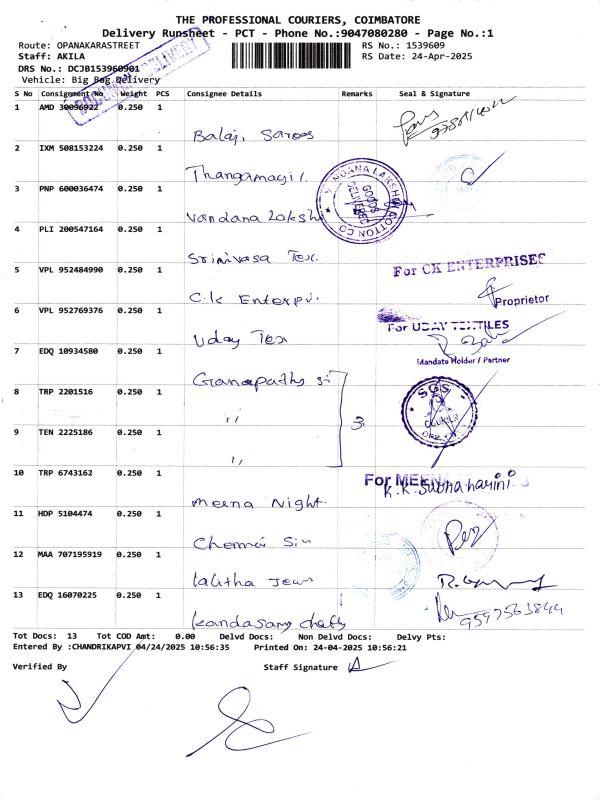 THE PROFESSIONAL COURIERS, COIMBATORE
Delivery Runsheet - PCT - Phone No.:9047080280 - Page No.:1
Route: OPANAKARASTREET
RS No.: 1539609
Staff: AKILA
RS Date: 24-Apr-2025
DRS No.: DCJB153960901
Vehicle: Big Bag Delivery
DOCUMENT DELIVERY
S No Consignment No Weight PCS Consignee Details Remarks Seal & Signature
1 AMD 30096922 0.250 1
Balaji Sarees
2 IXM 508153224 0.250 1
Thangamayil
3 PNP 600036474 0.250 1
Vandana Laksh
VANDANA LAKSHMI COTTON CO
GOODS DELIVERED
4 PLI 200547164 0.250 1
Srinivasa Tex.
5 VPL 952484990 0.250 1
For CK ENTERPRISES
C.k Enterpri.
Proprietor
6 VPL 952769376 0.250 1
For UDAY TEXTILES
Uday Tex
Mandate Holder / Partner
7 EDQ 10934580 0.250 1
Ganapathy si
8 TRP 2201516 0.250 1
,,
3
SGS
COURIER
9 TEN 2225186 0.250 1
,,
10 TRP 6743162 0.250 1
For MEENA
K.K. Subhaharini
Meena Night.
11 HDP 5104474 0.250 1
Chennai Sil
12 MAA 707195919 0.250 1
Lalitha Jew
13 EDQ 16070225 0.250 1
kandasamy chetty
9597563844
Tot Docs: 13 Tot COD Amt: 0.00 Delvd Docs: Non Delvd Docs: Delvy Pts:
Entered By :CHANDRIKAPVI 04/24/2025 10:56:35 Printed On: 24-04-2025 10:56:21
Verified By Staff Signature